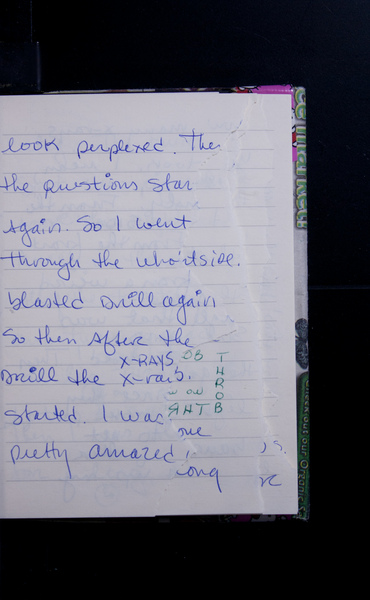 look perplexed. The
the questions star
Again. So I went
through the who'tside.
blasted Drill again
So then After the
X-RAYS
Drill the X-rais.
started. I was
pretty amazed
me
ong
THROB
Check out our Organic